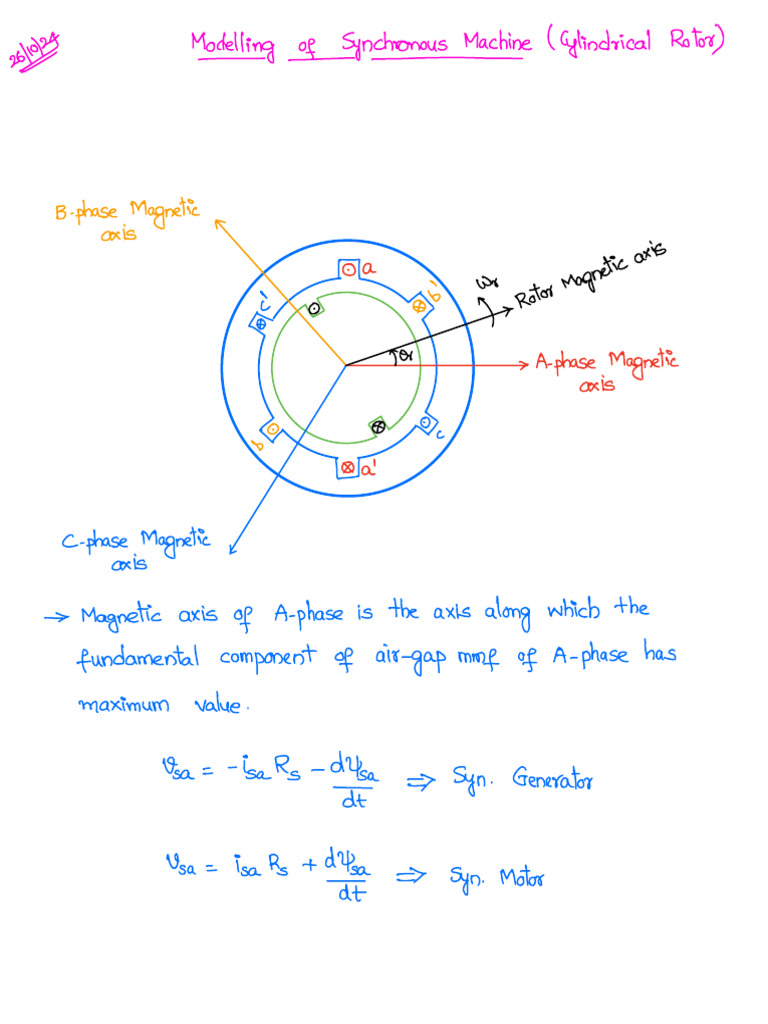 26/10/24
Modelling of Synchronous Machine (Cylindrical Rotor)
B-phase Magnetic
axis
a
b'
c'
ωr
Rotor Magnetic axis
θr
A-phase Magnetic
axis
b
c
a'
C-phase Magnetic
axis
→ Magnetic axis of A-phase is the axis along which the
fundamental component of air-gap mmf of A-phase has
maximum value.
v_sa = -i_sa R_s - dψ_sa/dt ⇒ Syn. Generator
v_sa = i_sa R_s + dψ_sa/dt ⇒ Syn. Motor